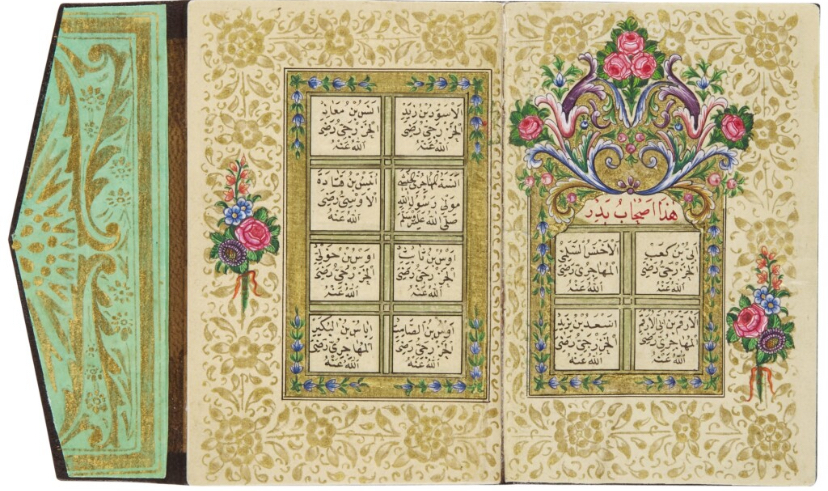 هذا اصحاب بدر
ابي بن كعب
الخزرجي رضي
الله عنه
الاخنس السلمي
المهاجري رضي
الله عنه
الارقم بن ابي الارقم
المهاجري رضي
الله عنه
اسعد بن يزيد
الخزرجي رضي
الله عنه
الاسود بن زيد
الخزرجي رضي
الله عنه
انس بن معاذ
الخزرجي رضي
الله عنه
انسة المهاجري الحبشي
مولى رسول الله
صلى الله عليه وسلم
انيس بن قتادة
الاوسي رضي
الله عنه
اوس بن ثابت
الخزرجي رضي
الله عنه
اوس بن خولي
الخزرجي رضي
الله عنه
اوس بن الصامت
الخزرجي رضي
الله عنه
اياس بن البكير
المهاجري رضي
الله عنه